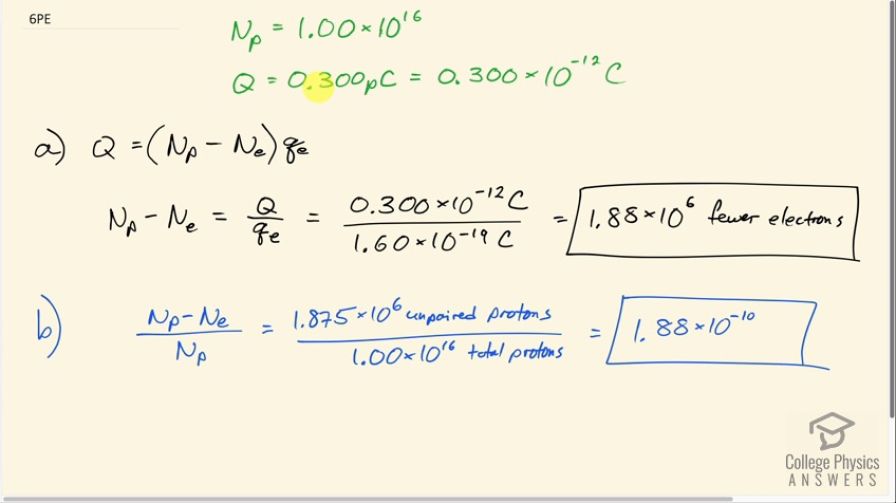 6PE
Nₚ = 1.00 × 10¹⁶
Q = 0.300pC = 0.300 × 10⁻¹² C
a) Q = (Nₚ − Nₑ) qₑ
Nₚ − Nₑ = Q/qₑ = 0.300 × 10⁻¹² C / 1.60 × 10⁻¹⁹ C = 1.88 × 10⁶ fewer electrons
b) (Nₚ − Nₑ)/Nₚ = 1.875 × 10⁶ unpaired protons / 1.00 × 10¹⁶ total protons = 1.88 × 10⁻¹⁰
College Physics
ANSWERS